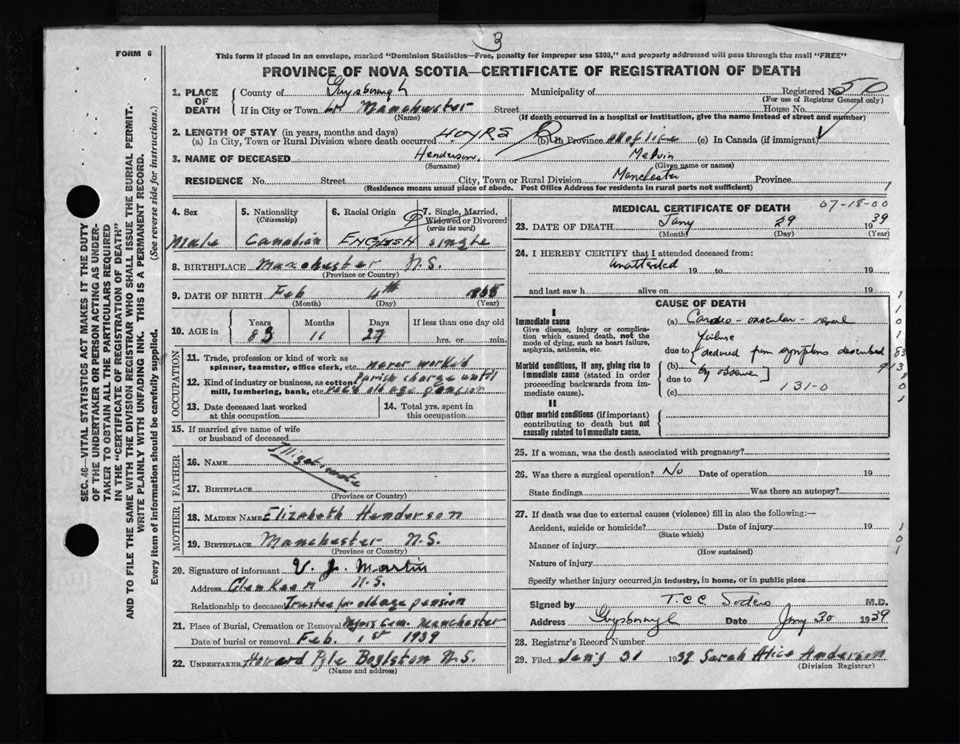 3
FORM 6
This form if placed in an envelope, marked "Dominion Statistics—Free, penalty for improper use $300," and properly addressed will pass through the mail "FREE"
PROVINCE OF NOVA SCOTIA—CERTIFICATE OF REGISTRATION OF DEATH
SEC. 46—VITAL STATISTICS ACT MAKES IT THE DUTY
OF THE UNDERTAKER OR PERSON ACTING AS UNDER-
TAKER TO OBTAIN ALL THE PARTICULARS REQUIRED
IN THE "CERTIFICATE OF REGISTRATION OF DEATH"
AND TO FILE THE SAME WITH THE DIVISION REGISTRAR WHO SHALL ISSUE THE BURIAL PERMIT.
WRITE PLAINLY WITH UNFADING INK. THIS IS A PERMANENT RECORD.
Every item of information should be carefully supplied. (See reverse side for instructions.)
1. PLACE OF DEATH
County of Guysborough Municipality of Registered No. 50
(For use of Registrar General only)
If in City or Town Manchester Street House No.
(Name) (If death occurred in a hospital or institution, give the name instead of street and number)
2. LENGTH OF STAY (in years, months and days)
(a) In City, Town or Rural Division where death occurred (b) In Province all of life (c) In Canada (if immigrant)
3. NAME OF DECEASED Henderson, Melvin
(Surname) (Given name or names)
RESIDENCE No. Street City, Town or Rural Division Manchester Province
(Residence means usual place of abode. Post Office Address for residents in rural parts not sufficient)
4. Sex
Male
5. Nationality
(Citizenship)
Canadian
6. Racial Origin
English
7. Single, Married,
Widowed or Divorced
(write the word)
single
8. BIRTHPLACE Manchester N.S.
(Province or Country)
9. DATE OF BIRTH Feb 4th
(Month) (Day) (Year)
10. AGE in
Years Months Days If less than one day old
83 11 27 hrs. or min.
OCCUPATION
11. Trade, profession or kind of work as
spinner, teamster, office clerk, etc. never worked
12. Kind of industry or business, as cotton
mill, lumbering, bank, etc. Parish charge until
old age pension
13. Date deceased last worked
at this occupation
14. Total yrs. spent in
this occupation
15. If married give name of wife
or husband of deceased
FATHER
16. NAME Illegitimate
17. BIRTHPLACE
(Province or Country)
MOTHER
18. MAIDEN NAME Elizabeth Henderson
19. BIRTHPLACE Manchester N.S.
(Province or Country)
20. Signature of informant V. J. Martin
Address Glenkeen N.S.
Relationship to deceased Trustee for old age pension
21. Place of Burial, Cremation or Removal Cem. Manchester
Date of burial or removal Feb. 1st 1939
22. UNDERTAKER Howard Pyle Boylston N.S.
(Name and address)
07-18-00
MEDICAL CERTIFICATE OF DEATH
23. DATE OF DEATH Jany 29 1939
(Month) (Day) (Year)
24. I HEREBY CERTIFY that I attended deceased from:
Unattended 19 to 19
and last saw h alive on 19
CAUSE OF DEATH
I
Immediate cause
Give disease, injury or complica-
tion which caused death, not the
mode of dying, such as heart failure,
asphyxia, asthenia, etc.
(a) Cardio-vascular-renal
failure
due to
Morbid conditions, if any, giving rise to
immediate cause (stated in order
proceeding backwards from im-
mediate cause).
(b) deduced from symptoms described
by
due to
(c) 131-0
II
Other morbid conditions (if important)
contributing to death but not
causally related to immediate cause.
25. If a woman, was the death associated with pregnancy?
26. Was there a surgical operation? No Date of operation 19
State findings Was there an autopsy?
27. If death was due to external causes (violence) fill in also the following:—
Accident, suicide or homicide? Date of injury 19
(State which)
Manner of injury
(How sustained)
Nature of injury
Specify whether injury occurred in industry, in home, or in public place
Signed by M.D.
Address Guysborough Date Jany 30 1939
28. Registrar's Record Number
29. Filed Jany 31 1939 Sarah Alice Anderson
(Division Registrar)